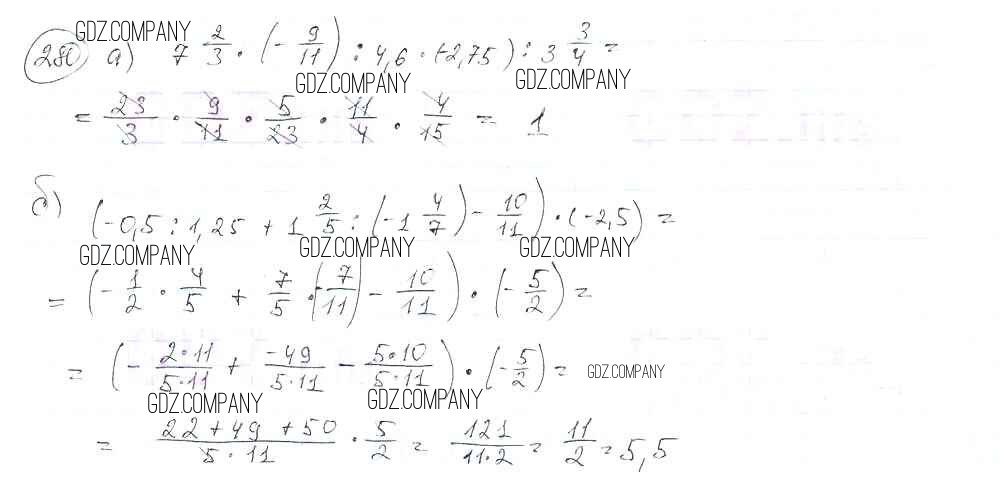 GDZ.COMPANY
280 а) 7 2/3 · (- 9/11) : 4,6 · (-2,75) : 3 3/4 =
GDZ.COMPANY GDZ.COMPANY
= 23/3 · 9/11 · 5/23 · 11/4 · 4/15 = 1
б) (-0,5 : 1,25 + 1 2/5 : (-1 4/7) - 10/11) · (-2,5) =
GDZ.COMPANY GDZ.COMPANY GDZ.COMPANY
= (- 1/2 · 4/5 + 7/5 · (- 7/11) - 10/11) · (- 5/2) =
= (- 2·11/5·11 + -49/5·11 - 5·10/5·11) · (- 5/2) = GDZ.COMPANY
GDZ.COMPANY GDZ.COMPANY
= 22 + 49 + 50/5 · 11 · 5/2 = 121/11·2 = 11/2 = 5,5